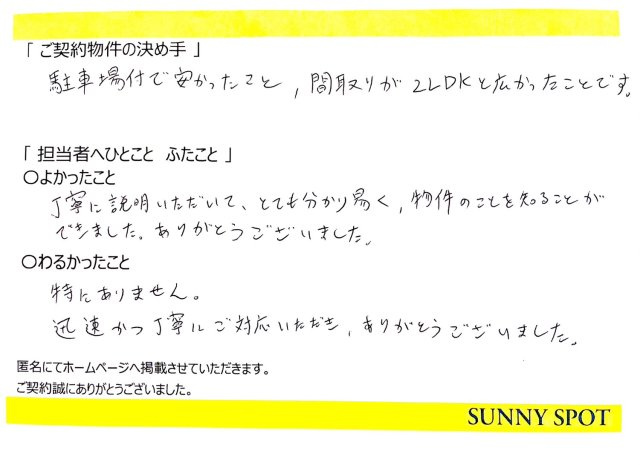 「 ご契約物件の決め手 」
駐車場付で安かったこと, 間取りが2LDKと広かったことです。
「 担当者へひとこと ふたこと 」
○よかったこと
丁寧に説明いただいて、とても分かり易く, 物件のことを知ることが
できました。ありがとうございました。
○わるかったこと
特にありません。
迅速かつ丁寧にご対応いただき, ありがとうございました。
匿名にてホームページへ掲載させていただきます。
ご契約誠にありがとうございました。
SUNNY SPOT